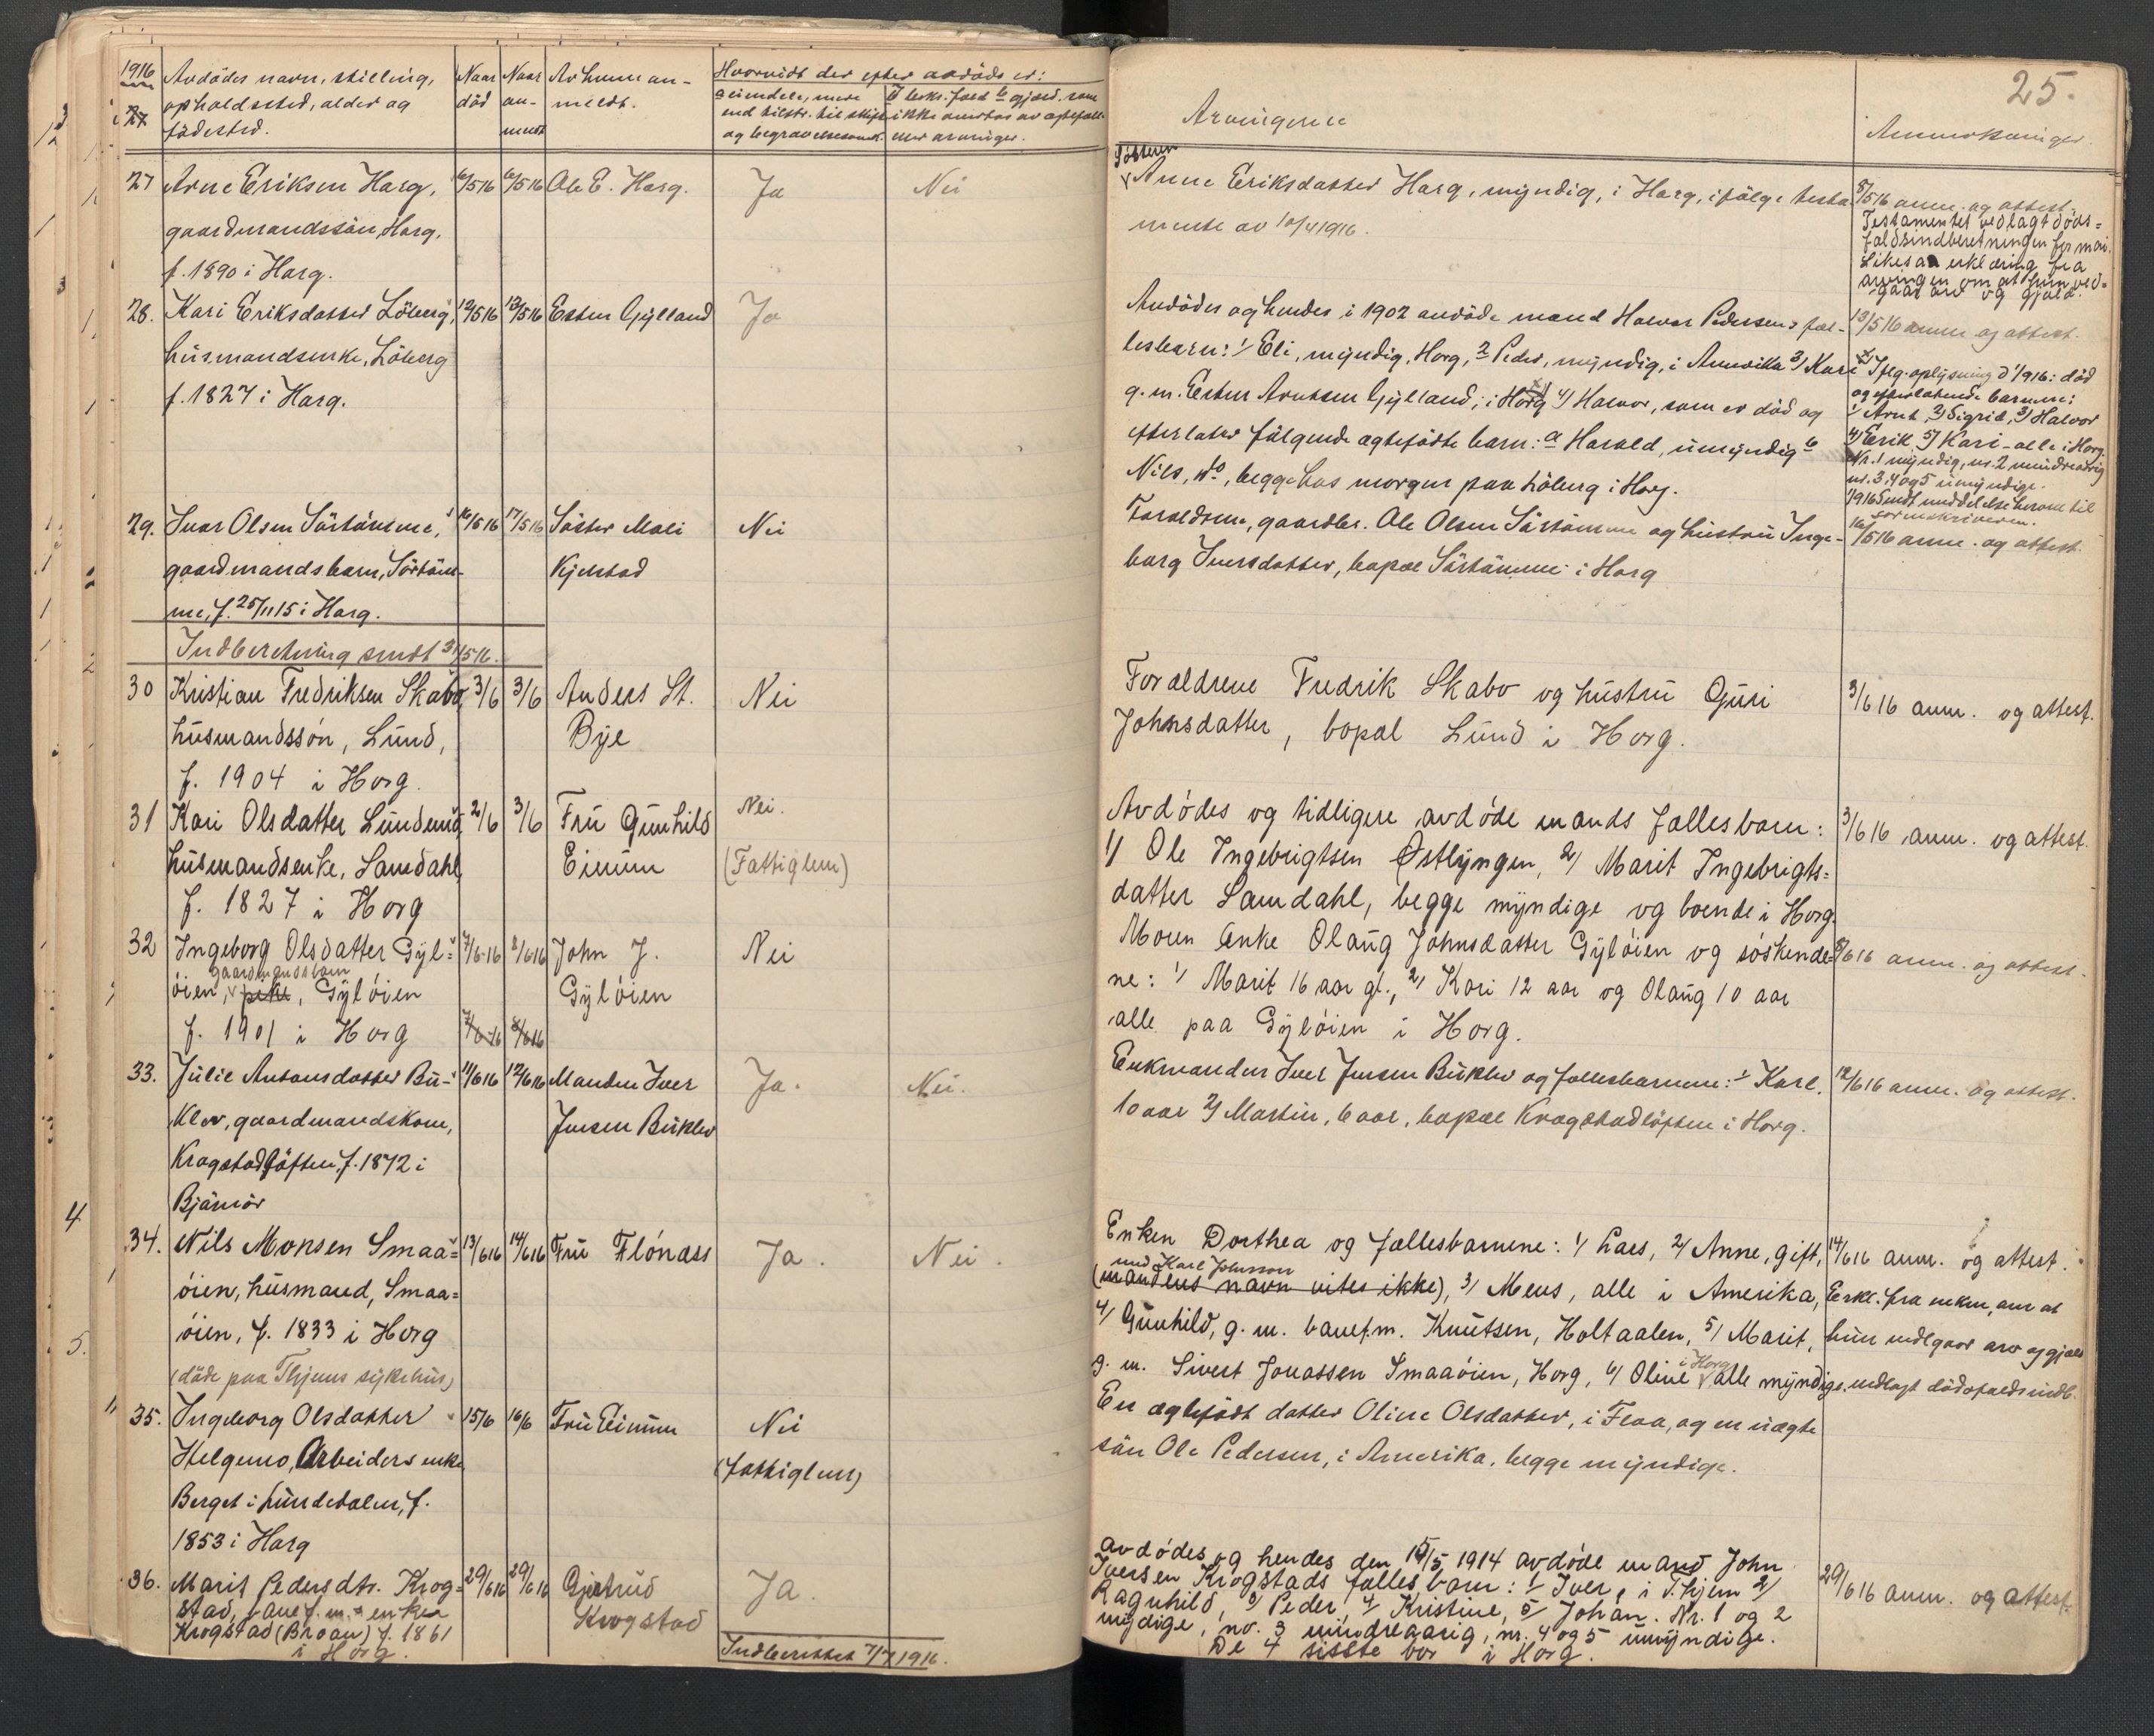 1916
27
Avdödes navn, stilling,
opholdssted, alder og
födested.
Naar
död
Naar
an-
meldt
Av hvem an-
meldt.
Hvorvidt der efter avdöde er:
a eiendele, mere
end tilstr. til skifte
og begravelsesomk.
eller arvinger.
25.
Arvingerne
Anmerkninger.
27 Arne Eriksen Horg,
gaardmandssön, Horg,
f. 1890 i Horg.
6/5 16
6/5 16
Ole E. Horg.
Ja
Nei
Søsteren
Anne Eriksdatter Horg, myndig, i Horg, ifölge testa-
mente av 10/4 1916.
8/5 16 anm. og attest.
Testamentet vedlagt döds=
faldsindberetningen for mai.
Likesaa erklæring fra
arvingen om at hun ved=
gaar arv og gjæld.
28. Kari Eriksdatter Löberg,
husmandsenke, Löberg
f. 1827 i Horg.
12/5 16
13/5 16
Esten Gylland
Ja
Avdödes og hendes i 1902 avdöde mand Halvor Pedersens fæl-
lesbarn: 1/ Eli, myndig, Horg, 2/ Peder, myndig, i Amerika 3/ Kari
g. m. Esten Arntsen Gylland, i Horg 4/ Halvor, som er död og
efterlater fölgende egtefödte barn: a Harald, umyndig b
Nils, do, begge hos moren paa Löberg i Horg.
13/5 16 anm. og attest.
x) Iflg. oplysning 1916: död
og efterlatende barnene:
1/ Arnt 2/ Sigrid, 3/ Halvor
4/ Erik 5/ Kari - alle i Horg.
Nr. 1 myndig, nr. 2 mindreaarig
nr. 3, 4 og 5 umyndige.
1916 Sendt meddelelse herom til
sorenskriveren.
29. Ivar Olsen Sörtömme,
gaardmandsbarn, Sörtöm-
me, f. 25/11 15 i Horg.
16/5 16
17/5 16
Söster Mali
Kjelstad
Nei
Foreldrene, gaardbr. Ole Olsen Sörtömme og hustru Inge-
borg Iversdatter, bopæl Sörtömme i Horg
16/5 16 anm. og attest.
Indberetning sendt 31/5 16.
30 Kristian Fredriksen Skabo,
husmandssön, Lund,
f. 1904 i Horg.
3/6
3/6
Anders St.
Bye
Nei
Forældrene Fredrik Skabo og hustru Guri
Johnsdatter, bopæl Lund i Horg.
3/6 16 anm. og attest.
31 Kari Olsdatter Lundemo,
husmandsenke, Samdahl,
f. 1827 i Horg
2/6
3/6
Fru Gunhild
Einum
Nei.
(Fattiglem)
Avdödes og tidligere avdöde mands fællesbarn:
1/ Ole Ingebrigtsen Østlyngen, 2/ Marit Ingebrigts=
datter Samdahl, begge myndige og boende i Horg.
3/6 16 anm. og attest.
32 Ingeborg Olsdatter Gyl=
gaardmandsbarn
öien, pike, Gylöien
f. 1901 i Horg
7/6-16
8/6 16
7/6-16
8/6 16
John J.
Gylöien
Nei
Moren Enke Olaug Johnsdatter Gylöien og söskende=
ne: 1/ Marit 16 aar gl., 2/ Kari 12 aar og Olaug 10 aar
alle paa Gylöien i Horg.
8/6 16 anm. og attest.
33. Julie Antonsdatter Bu-
klev, gaardmandskone,
Krogstadlöften, f. 1872 i
Bjärnör
11/6 16
12/6 16
Manden Iver
Jensen Buklev
Ja.
Nei.
Enkemanden Iver Jensen Buklev og fællesbarnene: 1/ Karl,
10 aar 2/ Martin, 6 aar, bopæl Krogstadlöften i Horg.
12/6 16 anm. og attest.
34. Nils Monsen Smaa=
öien, husmand, Smaa=
öien, f. 1833 i Horg
(döde paa Thjems sykehus)
13/6 16
14/6 16
Fru Flónæss
Ja.
Nei.
Enken Dorthea og fællesbarnene: 1/ Lars, 2/ Anne, gift,
med Karl Johnson
(mandens navn vites ikke), 3/ Mens, alle i Amerika,
4/ Gunhild, g. m. banef.m. Knutsen, Holtaalen, 5/ Marit,
g. m. Sivert Jonassen Smaaöien, Horg, 6/ Oline i Horg alle myndige.
14/6 16 anm. og attest.
Erkl. fra enken, om at
hun vedgaar arv og gjæld
vedlagt dödsfaldsindb.
35. Ingeborg Olsdatter
Helgemo, Arbeiders enke
Berget i Lundedalen, f.
1853 i Horg
15/6
16/6
Fru Einum
Nei
(fattiglem)
En egtefödt datter Oline Olsdatter, i Flaa, og en uægte
sön Ole Pedersen, i Amerika, begge myndige.
36. Marit Pedersdtr. Krog-
stad, banef.m. enke
Krogstad (Broan) f. 1861
i Horg.
29/6 16
29/6 16
Gjertrud
Krogstad
Ja.
Avdödes og hendes den 15/5 1914 avdöde mand John
Iversen Krogstads fællesbarn: 1/ Iver, i T.hjem 2/
Ragnhild, 3/ Peder, 4/ Kristine, 5/ Johan. Nr. 1 og 2
myndige, nr. 3 mindreaarig, nr. 4 og 5 umyndige.
De 4 sisste bor i Horg.
29/6 16 anm. og attest.
Indberettet 7/7 1916.